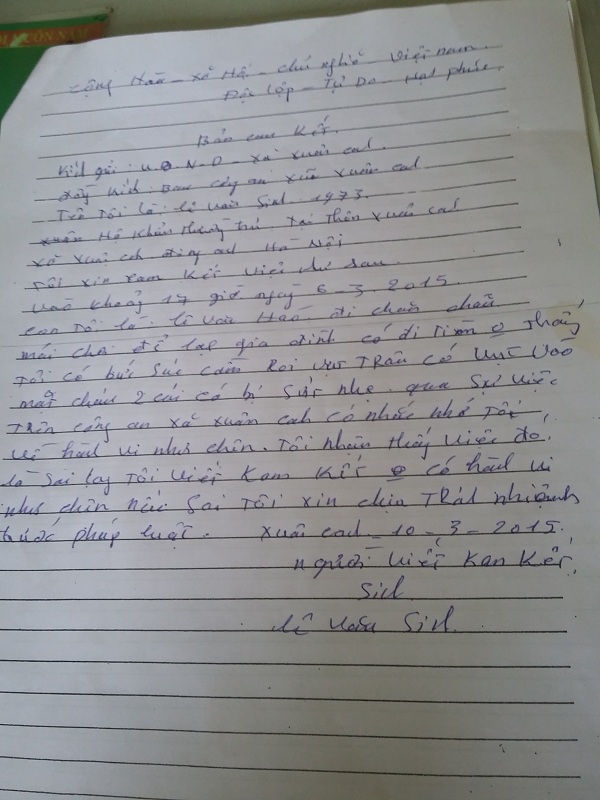 CÔN NĂM
Cộng Hoà - Xã Hội - chủ nghĩa - Việt nam.
Độc lập - Tự Do - Hạnh phúc.
Bản cam Kết.
Kính gửi: U.B.N.D - xã xuân canh
đồng kính Ban công an xã xuân canh
Tên Tôi là: lê văn Sinh. 1973.
Hộ khẩu thường trú. Tại thôn xuân canh
xã xuân canh đông anh Hà Nội
Tôi xin cam Kết việc như sau.
vào khoảng 17 giờ ngày 6-3-2015.
con Tôi là lê văn Hào. đi chăn
mải chơi để lạc gia đình có đi Tìm o Thấy
Tôi có bức súc cầm Roi vụt Trâu có vụt vào
mặt cháu 2 cái có bị sướt nhẹ. qua sự việc
Trên công an xã xuân canh có nhắc nhở Tôi
về hành vi như trên. Tôi nhận thấy việc đó
là sai lay Tôi viết Kam Kết o có hành vi
như trên nếu Sai Tôi xin chịu Trát nhiệm
trước pháp luật. xuân canh - 10 - 3 - 2015.
người viết Kam Kết,
Sinh
lê văn Sinh